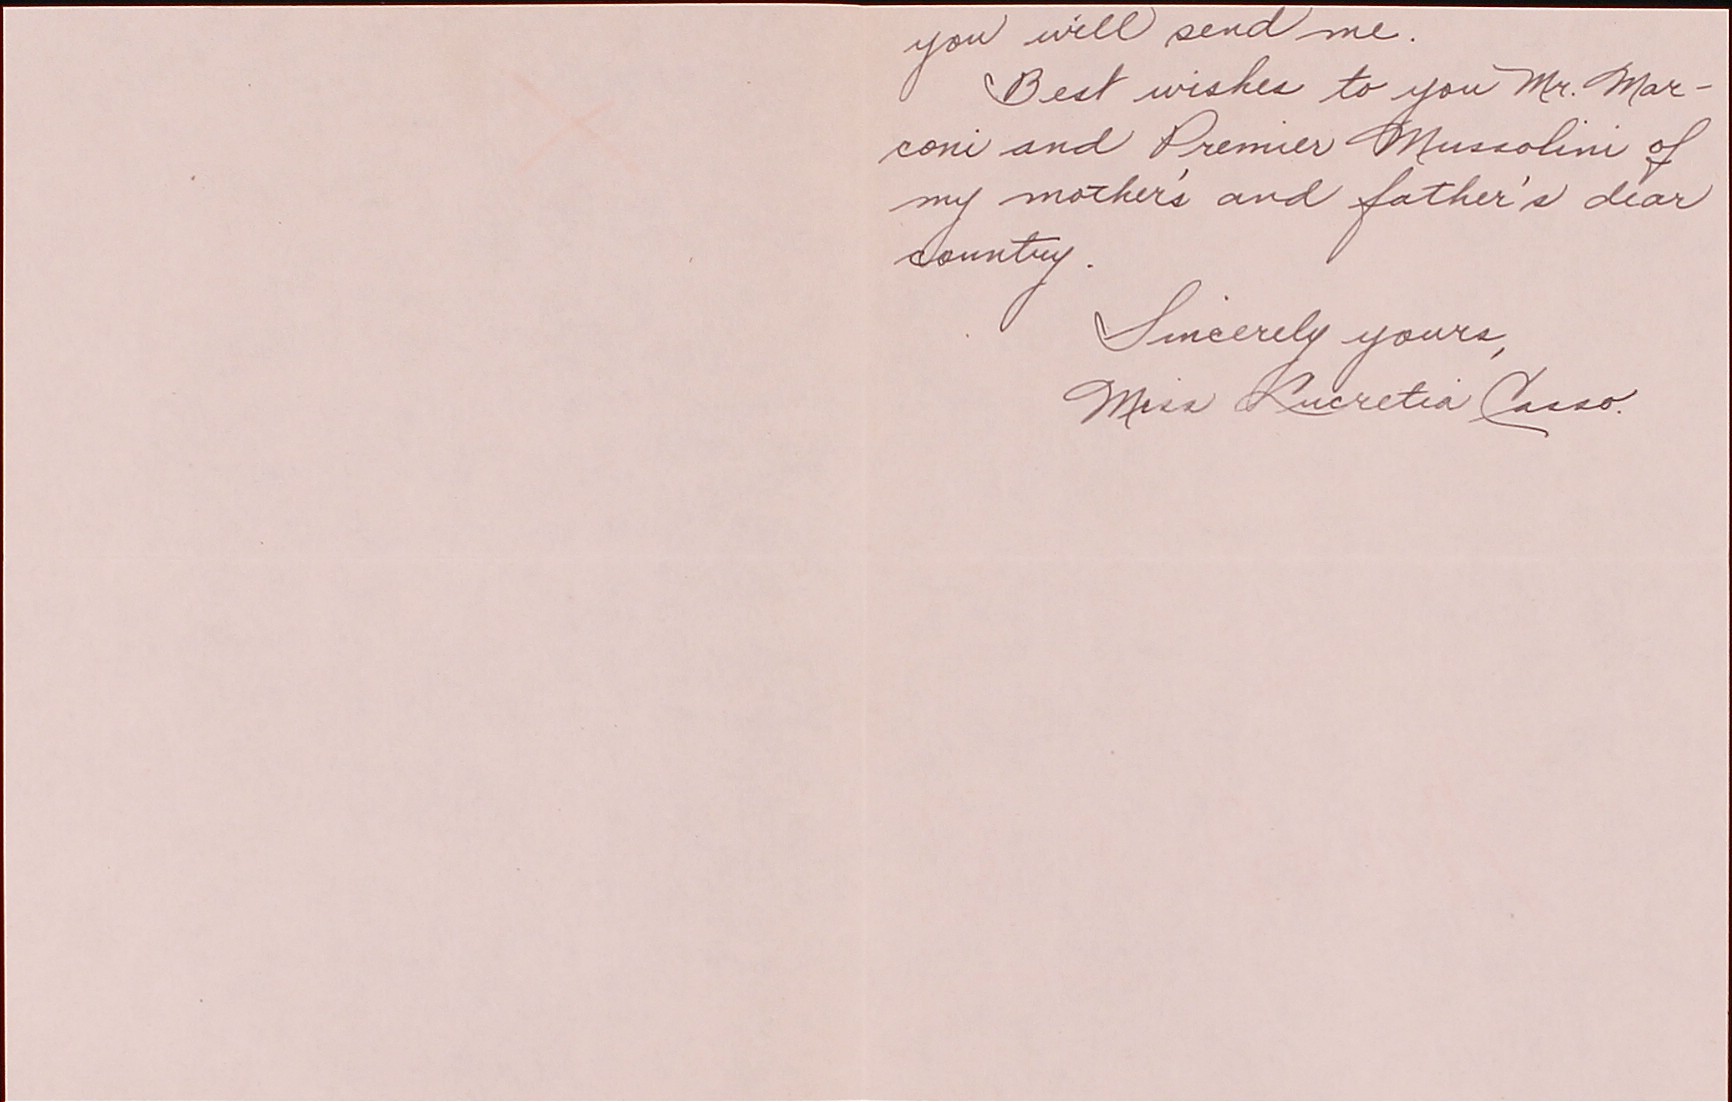 you will send me.
Best wishes to you Mr. Mar-
coni and Premier Mussolini of
my mother's and father's dear
country.
Sincerely yours,
Miss Lucretia Casso.